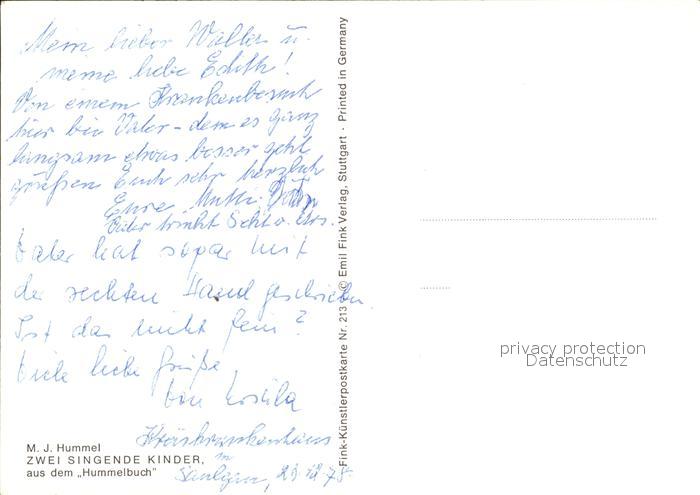 Mein lieber Walter u.
meine liebe Edith!
Von einem Krankenbesuch
hier bei Vater - dem es ganz
langsam etwas besser geht
grüßen Euch sehr herzlich
Eure Mutti.
Vater
Vater hat sogar mit
der rechten Hand geschrieben
Ist das nicht fein?
Viele liebe Grüße
von
Kreiskrankenhaus
in
Saulgau, 29.12.78.
M. J. Hummel
ZWEI SINGENDE KINDER,
aus dem „Hummelbuch"
Fink-Künstlerpostkarte Nr. 213 © Emil Fink Verlag, Stuttgart · Printed in Germany
privacy protection
Datenschutz